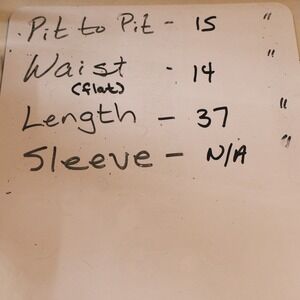 Pit to Pit - 15 "
Waist - 14 "
(flat)
Length - 37 "
Sleeve - N/A "